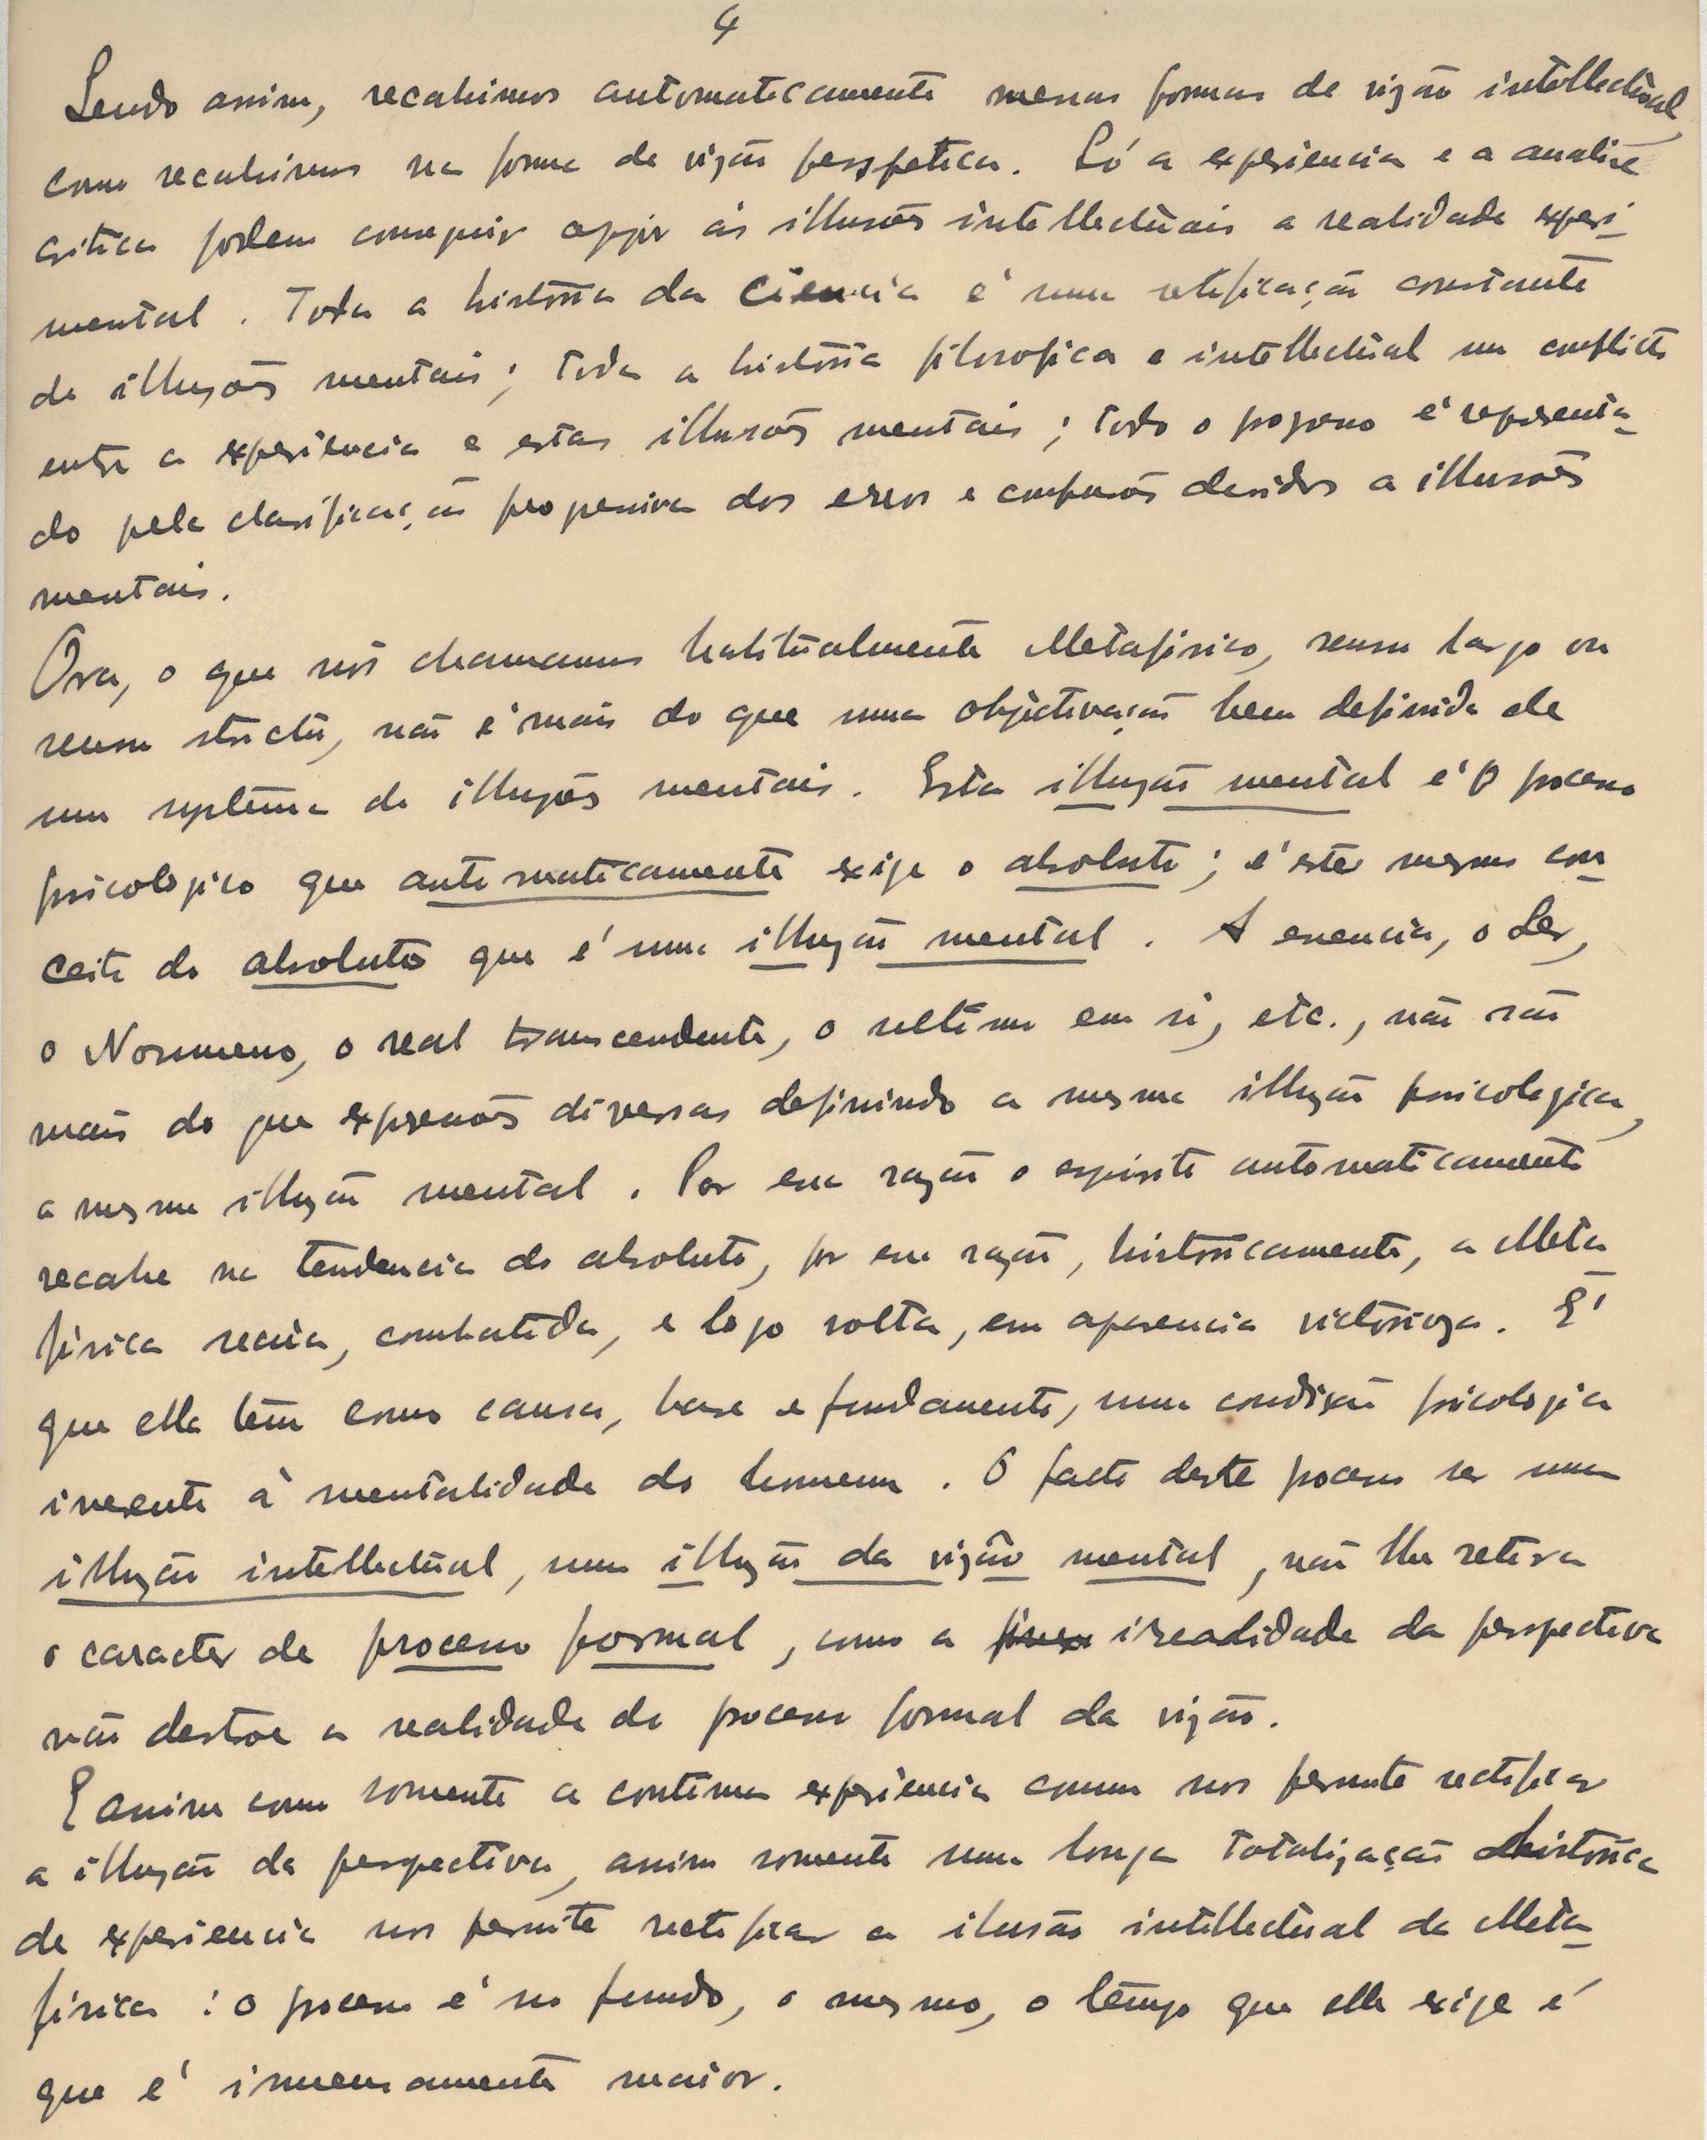 4
Sendo assim, recahimos automaticamente nessas formas de vizão intellectual
como recahimos na forma de vizão perspetica. Só a experiencia e a analise
critica podem conseguir oppôr ás illusões intellectuais a realidade experi-
mental. Toda a história da ciencia é uma retificação constante
de illuzões mentais; toda a história filosofica e intellectual um conflicto
entre a experiencia e estas illusões mentais; todo o progresso é representa-
do pela classificação progressiva dos erros e confusões devidos a illusões
mentais.
Ora, o que nós chamamos habitualmente Metafisico, sensu largo ou
sensu strictu, não é mais do que uma objectivação bem definida de
um systema de illuzões mentais. Esta illuzão mental é o processo
psicologico que automaticamente exije o absoluto; é este mesmo con-
ceito do absoluto que é uma illuzão mental. A essencia, o Ser,
o Noumeno, o real transcendente, o ultimo em si, etc., não são
mais do que expressões diversas definindo a mesma illuzão psicologica,
a mesma illuzão mental. Por essa razão o espirito automaticamente
recahe na tendencia do absoluto, por essa razão, históricamente, a Meta-
fisica recúa, combatida, e logo volta, em aparencia victorioza. E'
que ella têm como causa, base e fundamento, uma condição psicologica
inerente à mentalidade do homem. O facto deste processo ser uma
illuzão intellectual, uma illuzão da vizão mental, não lhe retira
o caracter de processo formal, como a irrealidade da perspectiva
não destroe a realidade do processo formal da vizão.
E assim como somente a continua experiencia comum nos permite rectificar
a illuzão da perspectiva, assim somente uma longa totalização histórica
de experiencia nos permite rectificar a ilusão intellectual da Meta-
fisica: o processo é no fundo, o mesmo, o tempo que elle exije é
que é immensamente maior.